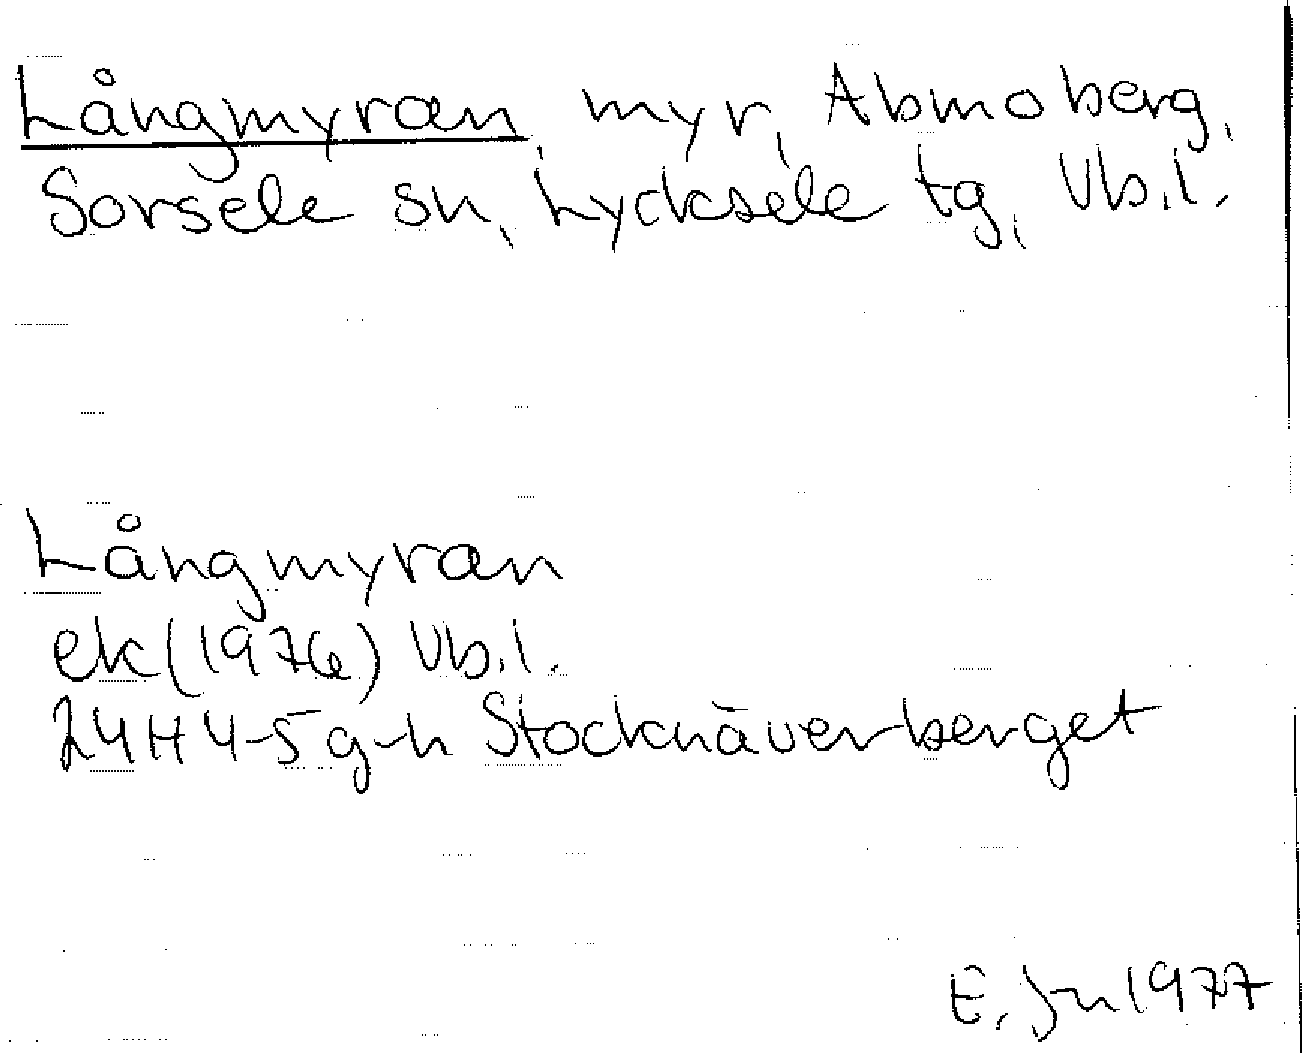 Långmyran, myr, Abmoberg,
Sorsele sn, Lycksele tg, Vb.l.
Långmyran
ek (1976) Vb.l.
24H 4-5 g-h Stocknäverberget
E. Jn 1977